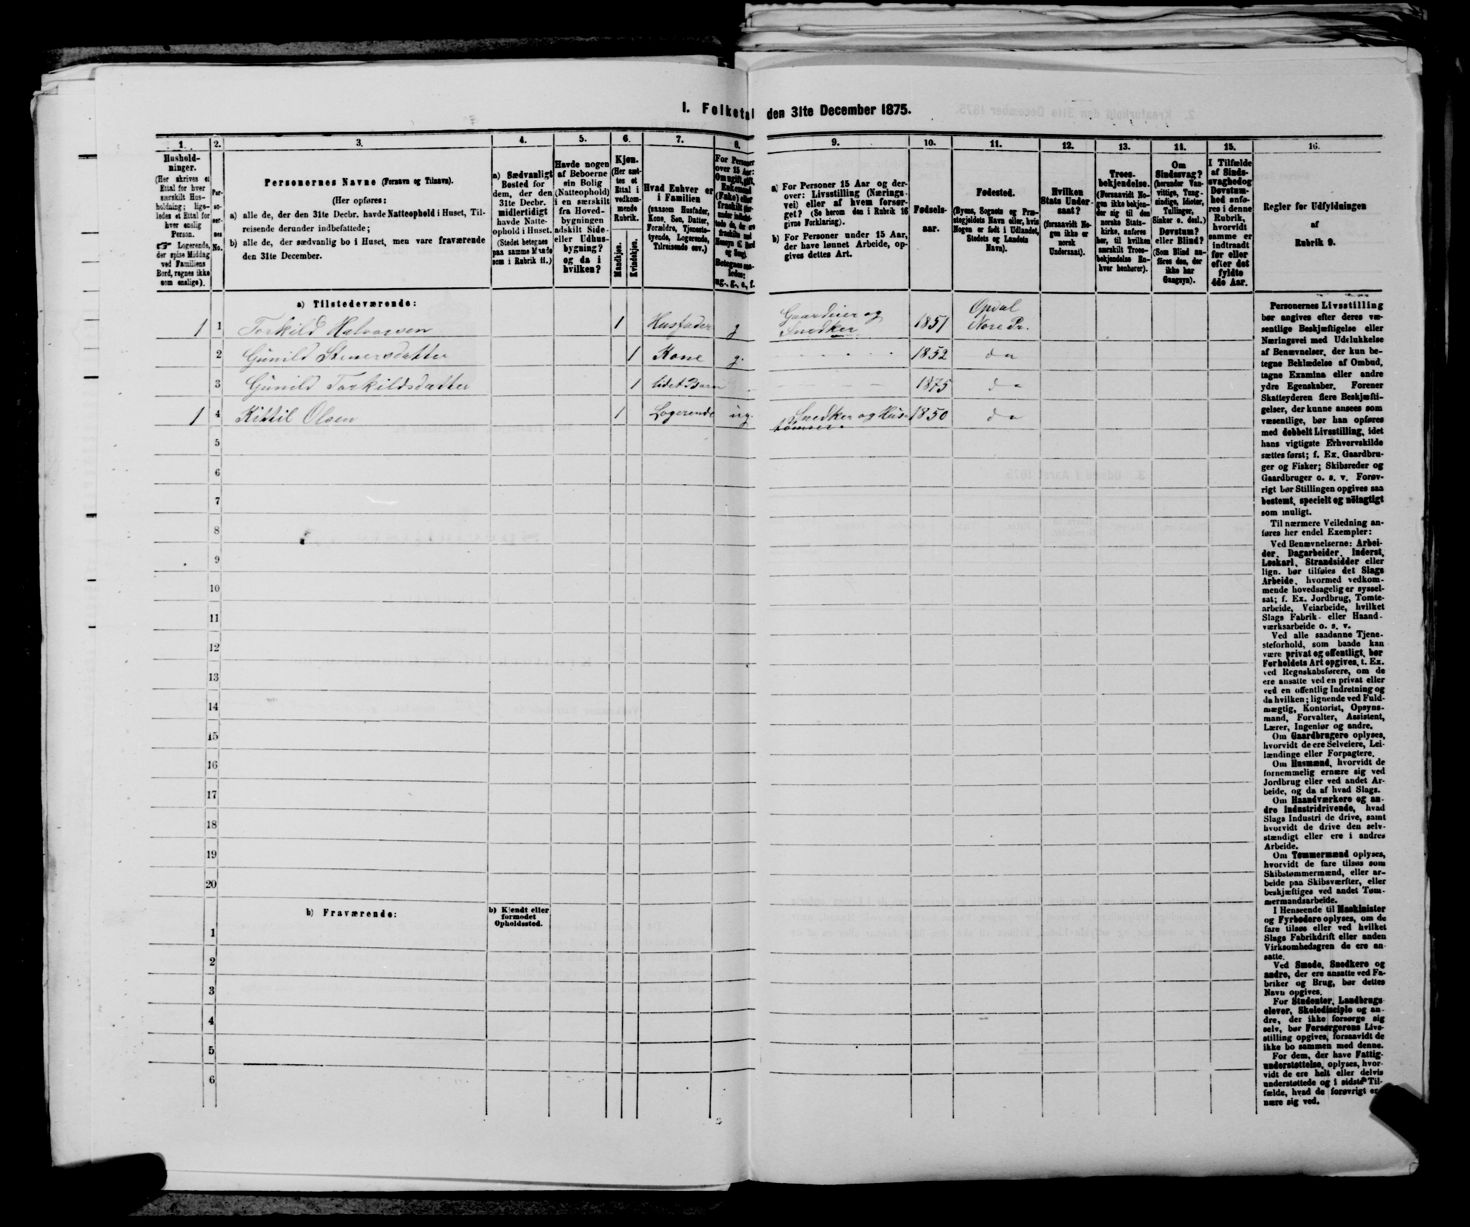 I. Folketal den 31te December 1875.
1.
2.
3.
4.
5.
6.
7.
8.
9.
10.
11.
12.
13.
14.
15.
16.
Hushold-
ninger.
(Her skrives et
Ettal for hver
særskilt Hus-
holdning; lige-
ledes et Ettal for
hver enslig
Person.
☞ Logerende,
der spise Middag
ved Familiens
Bord, regnes ikke
som enslige).
Per-
so-
ner-
nes
No.
Personernes Navne (Fornavn og Tilnavn).
(Her opføres:
a) alle de, der den 31te Decbr. havde Natteophold i Huset, Til-
reisende derunder indbefattede;
b) alle de, der sædvanlig bo i Huset, men vare fraværende
den 31te December.
a) Sædvanligt
Bosted for
dem, der den
31te Decbr.
midlertidigt
havde Natte-
ophold i Huset.
(Stedet betegnes
paa samme Maade
som i Rubrik 11.)
Havde nogen
af Beboerne
sin Bolig
(Natteophold)
i en særskilt
fra Hoved-
bygningen
adskilt Side-
eller Udhus-
bygning?
og da i
hvilken?
Kjøn.
(Her sæt-
tes et
Ettal i
vedkom-
mende
Rubrik.
Mandkjøn.
Kvindekjøn.
Hvad Enhver er
i Familien
(saasom Husfader,
Kone, Søn, Datter,
Forældre, Tjeneste-
tyende, Logerende,
Tilreisende osv.)
For Personer
over 15 Aar:
a) For Personer 15 Aar og der-
over: Livsstilling (Nærings-
vei) eller af hvem forsør-
get? (Se herom den i Rubrik 16
givne Forklaring).
b) For Personer under 15 Aar,
der have lønnet Arbeide, op-
gives dettes Art.
Fødsels-
aar.
Fødested.
(Byens, Sognets og Præ-
stegjeldets Navn eller, hvis
Nogen er født i Udlandet,
Stedets og Landets
Navn).
Hvilken
Stats Under-
saat?
(forsaavidt No-
gen ikke er
norsk
Undersaat).
Troes-
bekjendelse.
(Forsaavidt No-
gen ikke bekjen-
der sig til den
norske Stats-
kirke, anføres
her, til hvilken
særskilt Troes-
bekjendelse En-
hver henhører).
Om
Sindssvag?
(herunder Van-
vittige, Tung-
sindige, Idioter,
Tullinger,
Sinker o. desl.)
Døvstum?
eller Blind?
(Som Blind an-
føres den, der
ikke har
Gangsyn).
I Tilfælde
af Sinds-
svaghed og
Døvstum-
hed anfø-
res i denne
Rubrik,
hvorvidt
samme er
indtraadt
før eller
efter det
fyldte
4de Aar.
Regler for Udfyldningen
af
Rubrik 9.
a) Tilstedeværende:
1 1 Torkild Halvorsen 1 Husfader g Gaardeier og Snedker 1851 Opdal Nore Pr.
2 Gunild Steners datter 1 Kone g. 1852 do
3 Gunild Torkildsdatter 1 lidet Barn 1875 do
1 4 Kittil Olsen 1 Logerende ug. Snedker og Hustømrer 1850 do
5
6
7
8
9
10
11
12
13
14
15
16
17
18
19
20
b) Fraværende:
b) Kjendt eller
formodet
Opholdssted.
1
2
3
4
5
6
Personernes Livsstilling
bør angives efter deres væ-
sentlige Beskjæftigelse eller
Næringsvei med Udelukkelse
af Benævnelser, der kun be-
tegne Beklædelse af Ombud,
tagne Examina eller andre
ydre Egenskaber. Forener
Skatteyderen flere Beskjæfti-
gelser, der kunne ansees som
væsentlige, bør han opføres
med dobbelt Livsstilling, idet
hans vigtigste Erhvervskilde
sættes først; f. Ex. Gaardbru-
ger og Fisker; Skibsreder og
Gaardbruger o. s. v. Forøv-
rigt bør Stillingen opgives saa
bestemt, specielt og nøiagtigt
som muligt.
Til nærmere Veiledning an-
føres her endel Exempler:
Ved Benævnelserne: Arbei-
der, Dagarbeider, Inderst,
Løskarl, Strandsidder eller
lign. bør tilføies det Slags
Arbeide, hvormed vedkom-
mende hovedsagelig er syssel-
sat; f. Ex. Jordbrug, Tomte-
arbeide, Veiarbeide, hvilket
Slags Fabrik- eller Haand-
værksarbeide o. s. v.
Ved alle saadanne Tjene-
steforhold, som baade kan
være privat og offentligt, bør
Forholdets Art opgives, t. Ex.
ved Regnskabsførere, om de
ere ansatte ved en privat eller
ved en offentlig Indretning og
da hvilken; lignende ved Fuld-
mægtig, Kontorist, Opsyns-
mand, Forvalter, Assistent,
Lærer, Ingeniør og andre.
Om Gaardbrugere oplyses,
hvorvidt de ere Selveiere, Lei-
lændinge eller Forpagtere.
Om Husmænd, hvorvidt de
fornemmelig ernære sig ved
Jordbrug eller ved andet Ar-
beide, og da af hvad Slags.
Om Haandværkere og an-
dre Industridrivende, hvad
Slags Industri de drive, samt
hvorvidt de drive den selv-
stændigt eller ere i andres
Arbeide.
Om Tømmermænd oplyses,
hvorvidt de fare tilsøs som
Skibstømmermænd, eller ar-
beide paa Skibsværfter, eller
beskjæftiges ved andet Tøm-
mermandsarbeide.
I Henseende til Maskinister
og Fyrbødere oplyses, om de
fare tilsøs eller ved hvilket
Slags Fabrikdrift eller anden
Virksomhedsgren de ere an-
satte.
Ved Smede, Snedkere og
andre, der ere ansatte ved Fa-
briker og Brug, bør dettes
Navn opgives.
For Studenter, Landbrugs-
elever, Skoledisciple og an-
dre, der ikke forsørge sig
selv, bør Forsørgerens Livs-
stilling opgives, forsaavidt de
ikke bo sammen med denne.
For dem, der have Fattig-
understøttelse, oplyses, hvor-
vidt de ere helt eller delvis
understøttede og i sidste Til-
fælde, hvad de forøvrigt er-
nære sig ved.